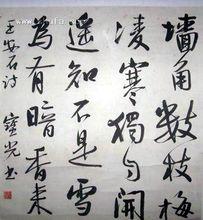 墙角数枝梅
凌寒独自开
遥知不是雪
为有暗香来
王安石诗 宝光书